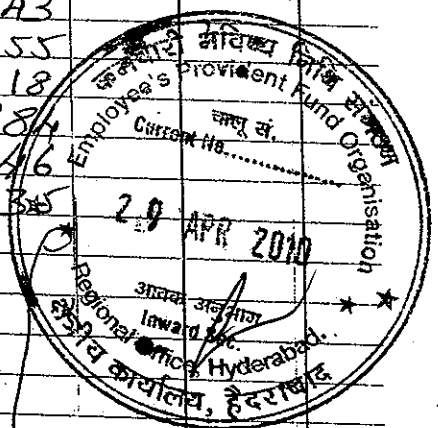 A3
55
18
84
46
35
कर्मचारी भविष्य निधि संगठन
Employee's Provident Fund Organisation
चालू सं.
Current No.............
20 APR 2010
आवक अनुभाग
Inward Sec.
Regional Office, Hyderabad.
क्षेत्रीय कार्यालय, हैदराबाद